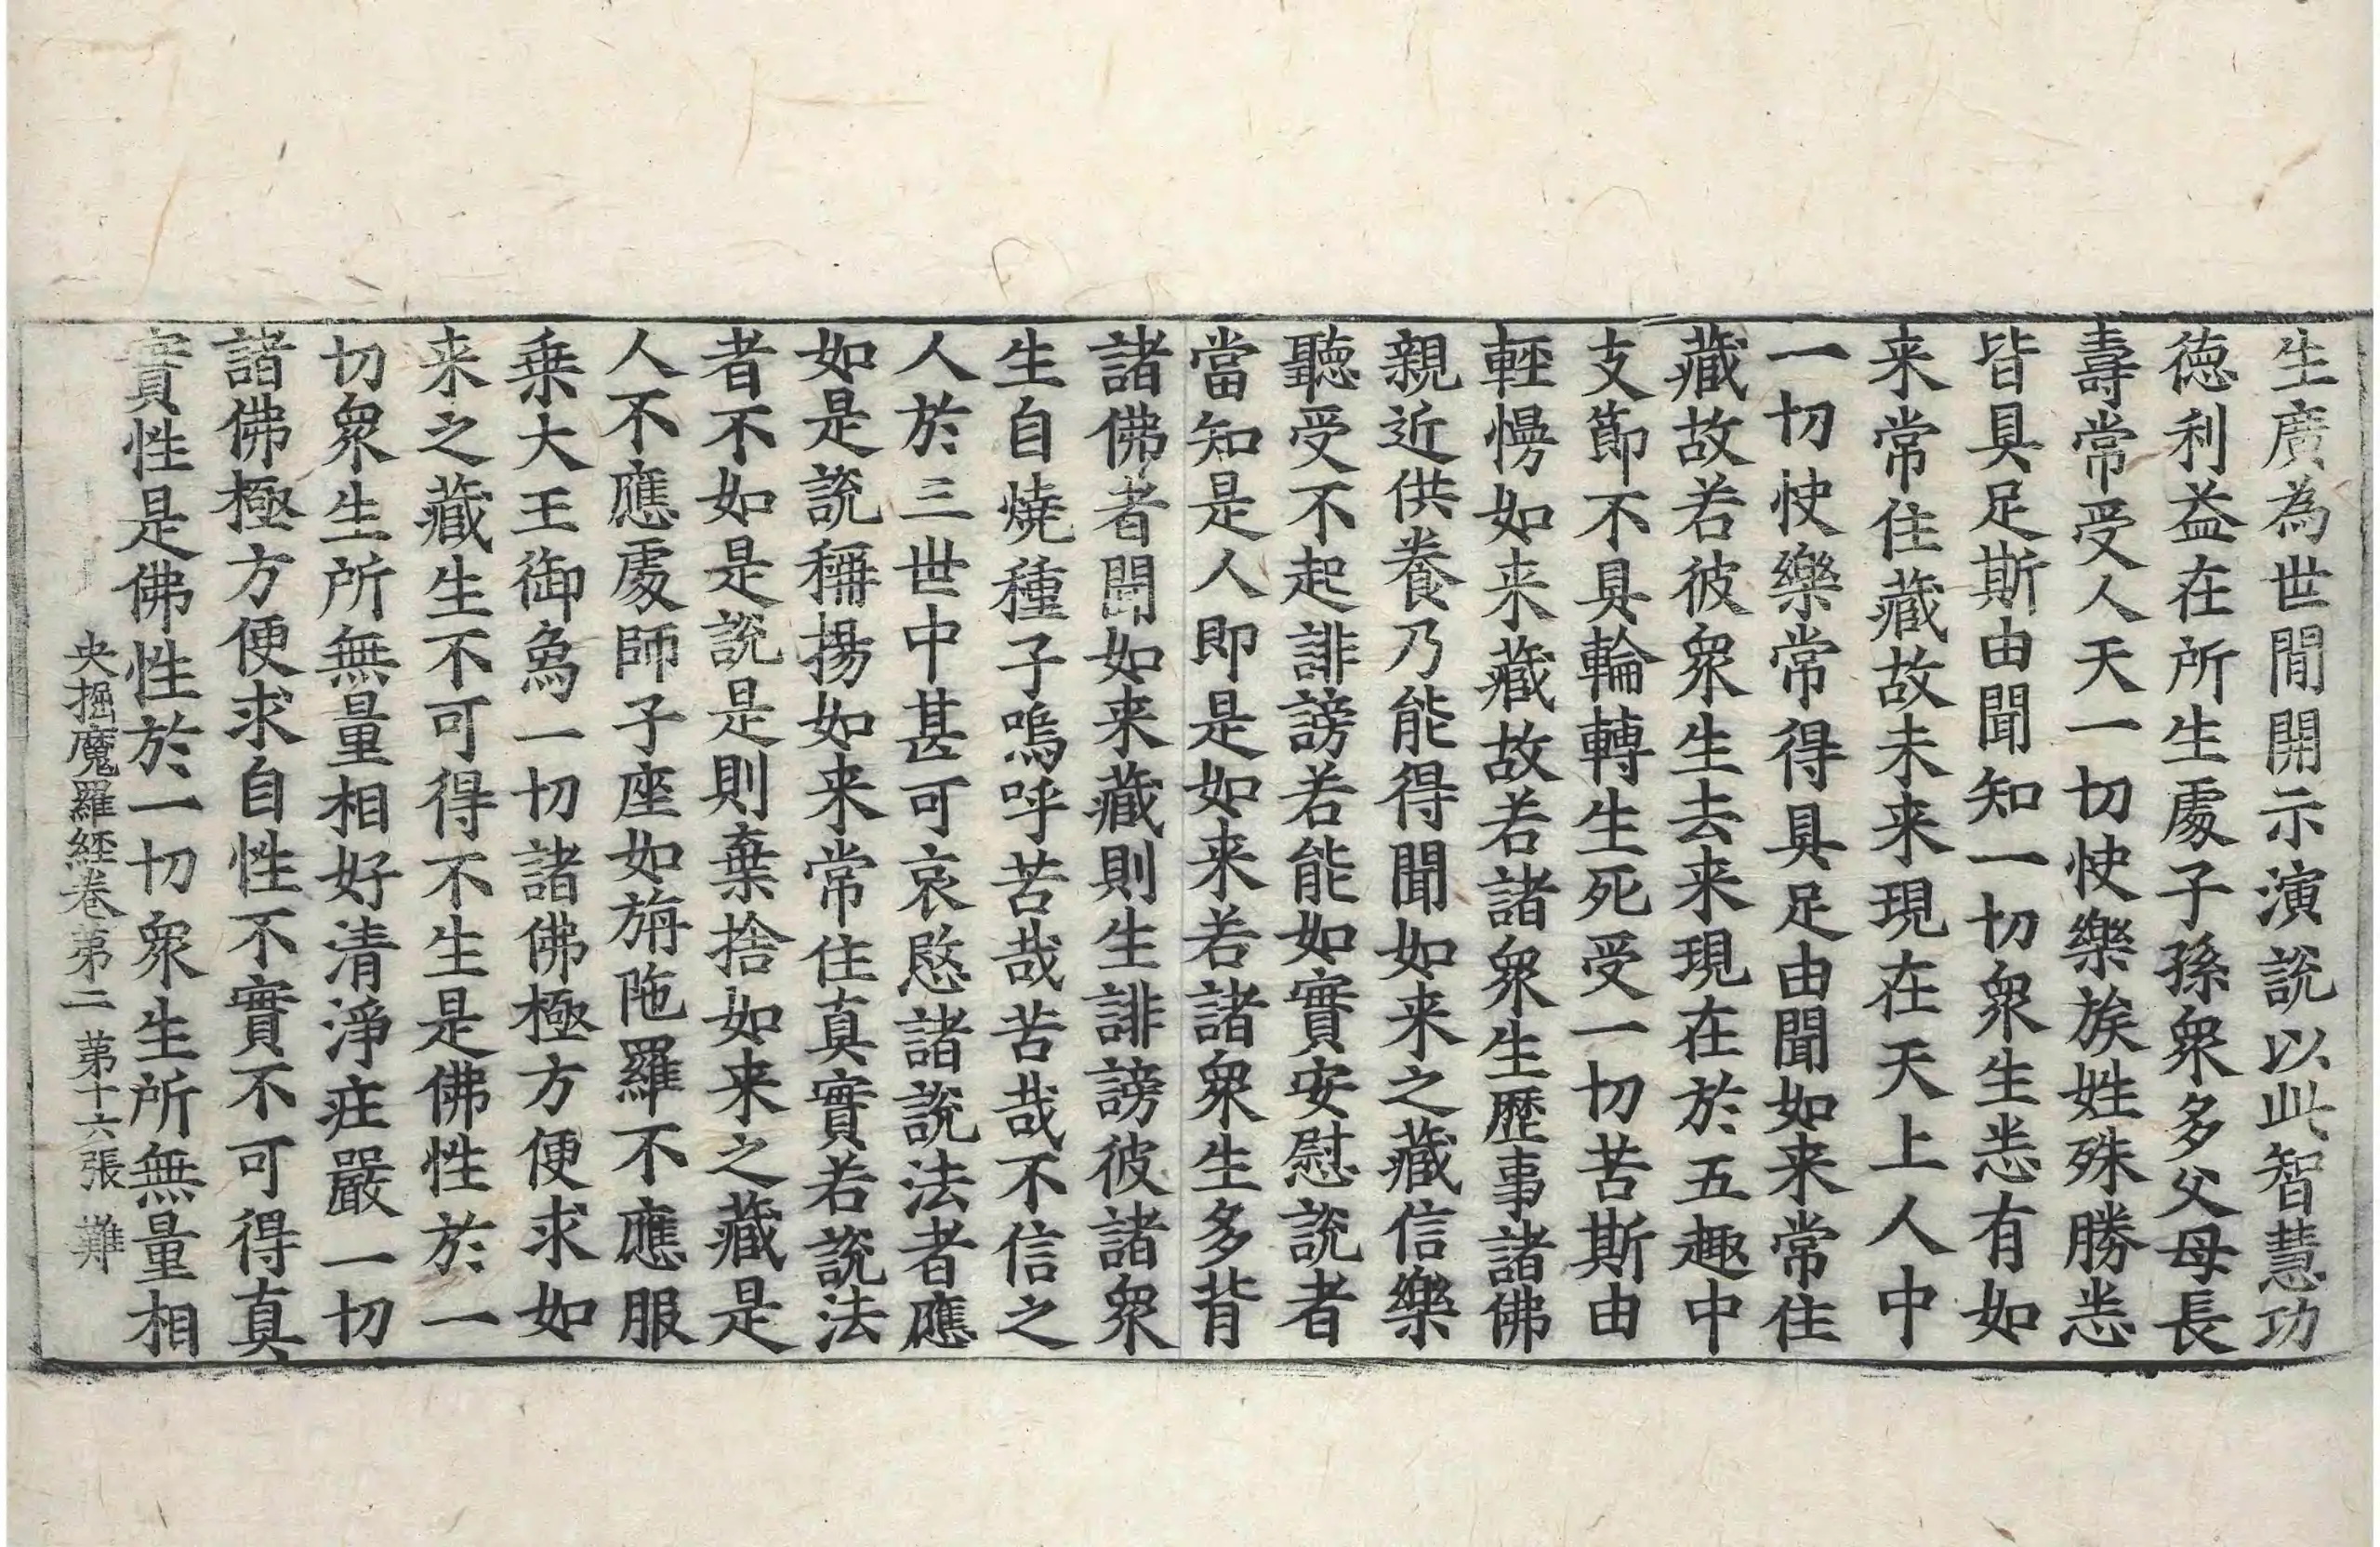 生廣為世間開示演說以此智慧功
德利益在所生處子孫衆多父母長
壽常受人天一切快樂族姓殊勝悉
皆具足斯由聞知一切衆生悉有如
来常住藏故未来現在天上人中
一切快樂常得具足由聞如来常住
藏故若彼衆生去来現在於五趣中
支節不具輪轉生死受一切苦斯由
輕慢如来藏故若諸衆生歷事諸佛
親近供養乃能得聞如来之藏信樂
聽受不起誹謗若能如實安慰說者
當知是人即是如来若諸衆生多背
諸佛者聞如来藏則生誹謗彼諸衆
生自燒種子嗚呼苦哉苦哉不信之
人於三世中甚可哀愍諸說法者應
如是說稱揚如来常住真實若說法
者不如是說是則棄捨如来之藏是
人不應處師子座如旃陁羅不應服
乗大王御象一切諸佛極方便求如
来之藏生不可得不生是佛性於一
切衆生所無量相好清淨莊嚴一切
諸佛極方便求自性不實不可得真
實性是佛性於一切衆生所無量相
央掘魔羅經卷第二 第十六張 難